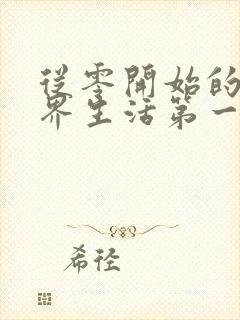 從零開始的
界生活第一
希徑